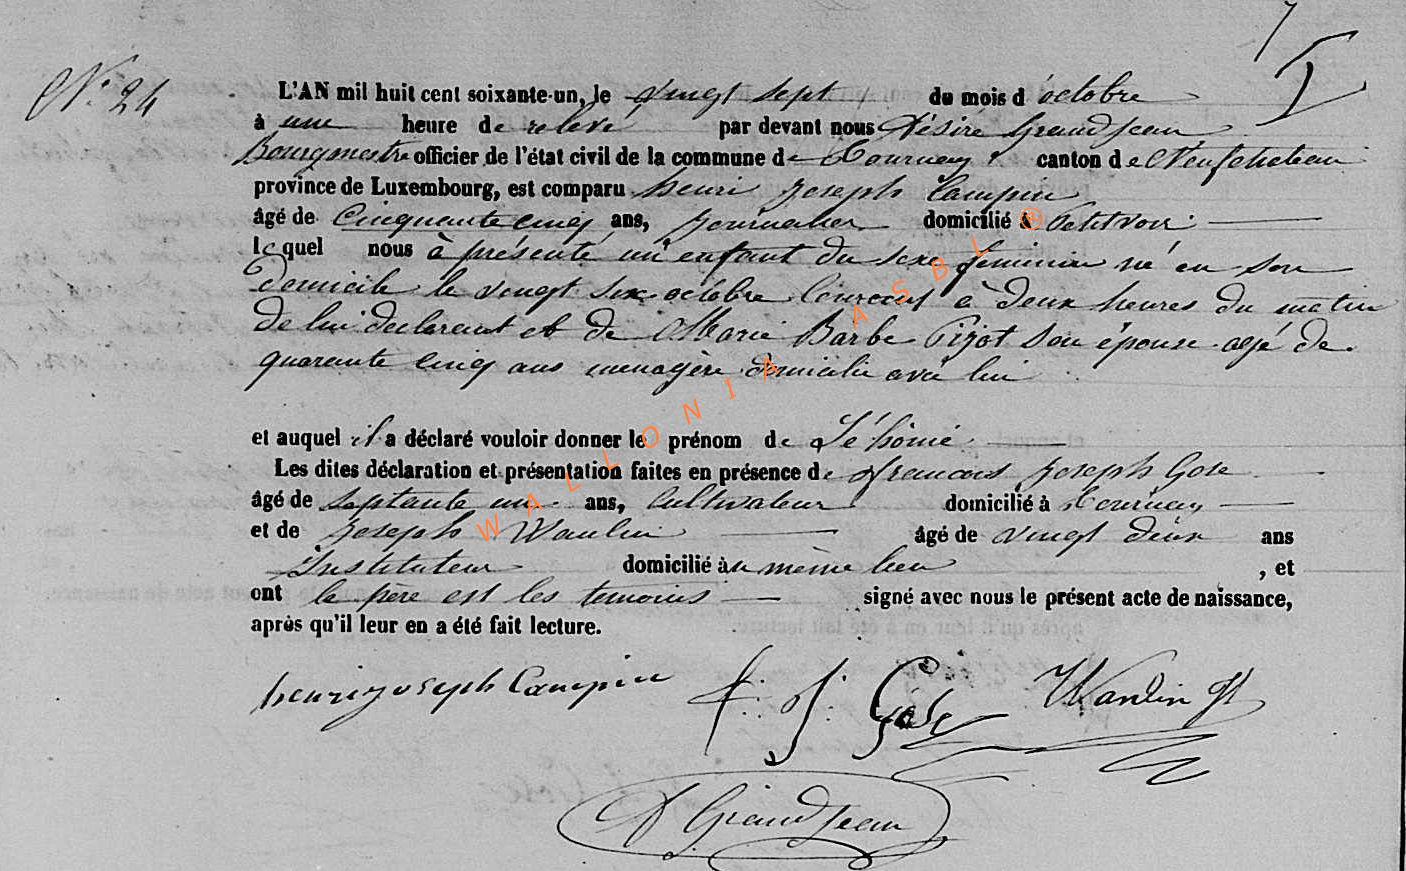 N° 24
L'AN mil huit cent soixante-un, le vingt sept du mois d'octobre
à une heure de relevé par devant nous Désiré Grandjean
Bourgmestre officier de l'état civil de la commune de Tournay canton de Neufchateau
province de Luxembourg, est comparu henri Joseph Campin
âgé de Cinquante cinq ans, journalier domicilié à Petitvoir
lequel nous à présenté un enfant du sexe feminin né en son
domicile le vingt six octobre Courant à deux heures du matin
de lui declarant et de Marie Barbe Pizot son épouse agé de
quarante cinq ans menagère domicilié avec lui
et auquel il a déclaré vouloir donner le prénom de
Les dites déclaration et présentation faites en présence de francois Joseph Gose
âgé de septante un ans, Cultivateur domicilié à Tournay
et de Joseph Wautin âgé de vingt deux ans
Instituteur domicilié au même lieu , et
ont le père est les temoins signé avec nous le présent acte de naissance,
après qu'il leur en a été fait lecture.
henri joseph Campin F. J. Gose
D Grandjean
WALLONIA ASBL ©